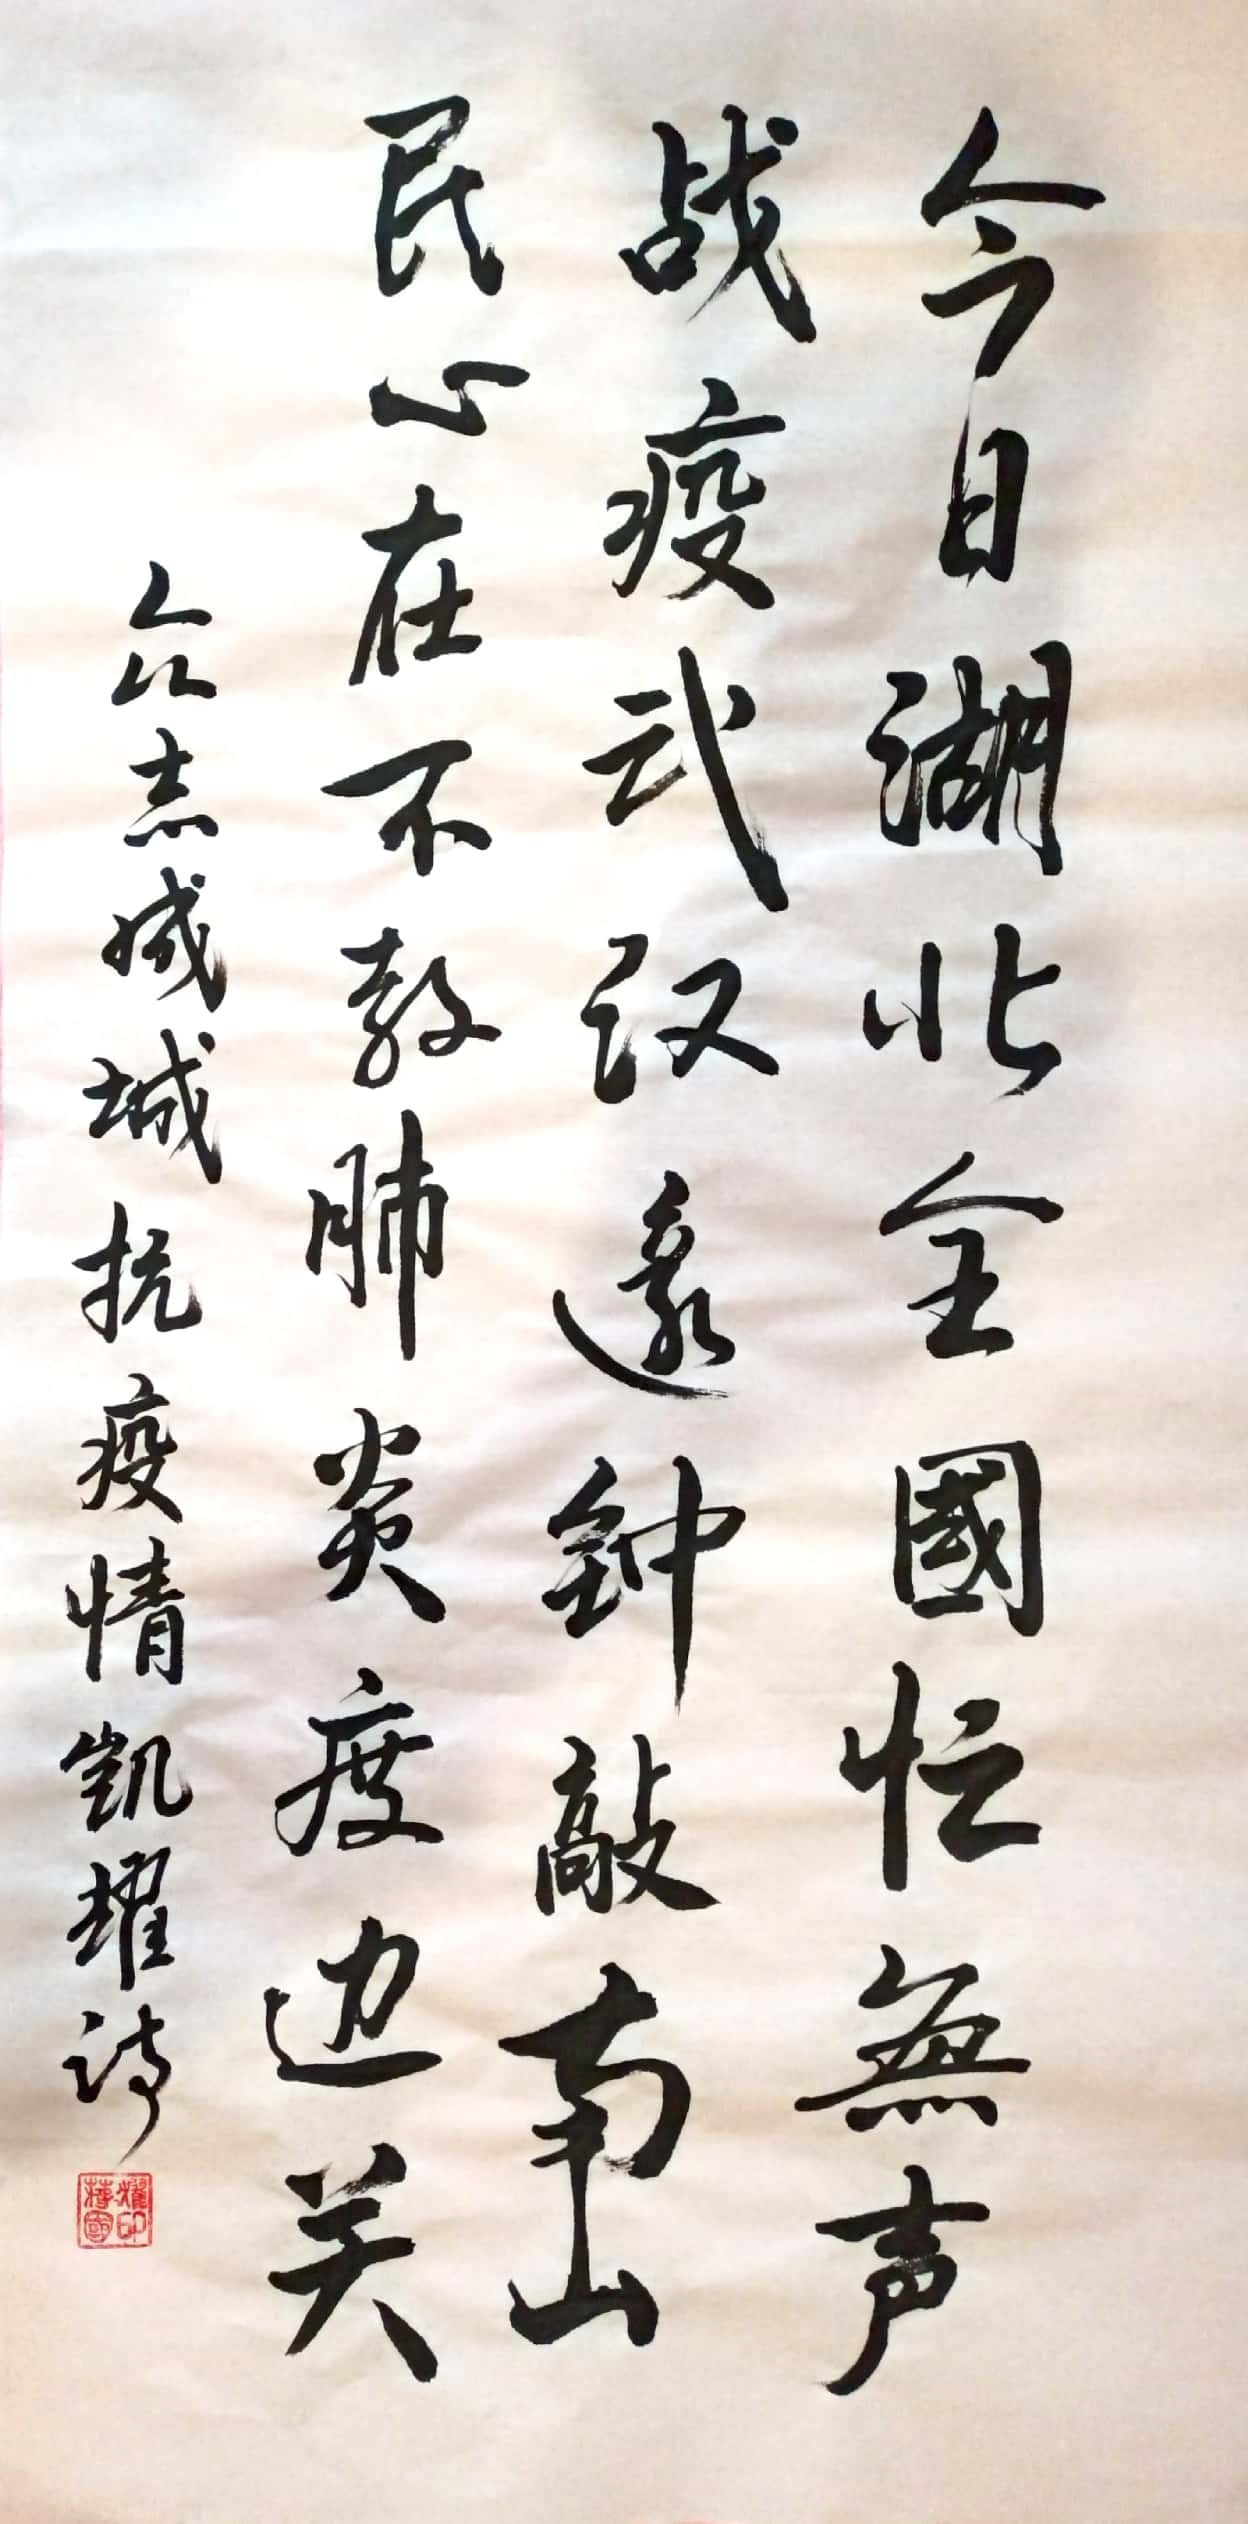 今日湖北全國忙無声
战疫武汉遠钟敲南山
民心在不教肺炎度边关
众志成城抗疫情凯耀诗